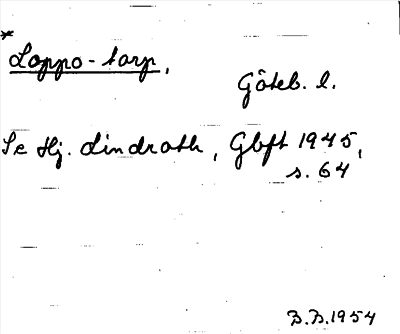 * Loppo-torp,
Göteb. l.
Se Hj. Lindroth, Gbft 1945,
s. 64
B.B. 1954